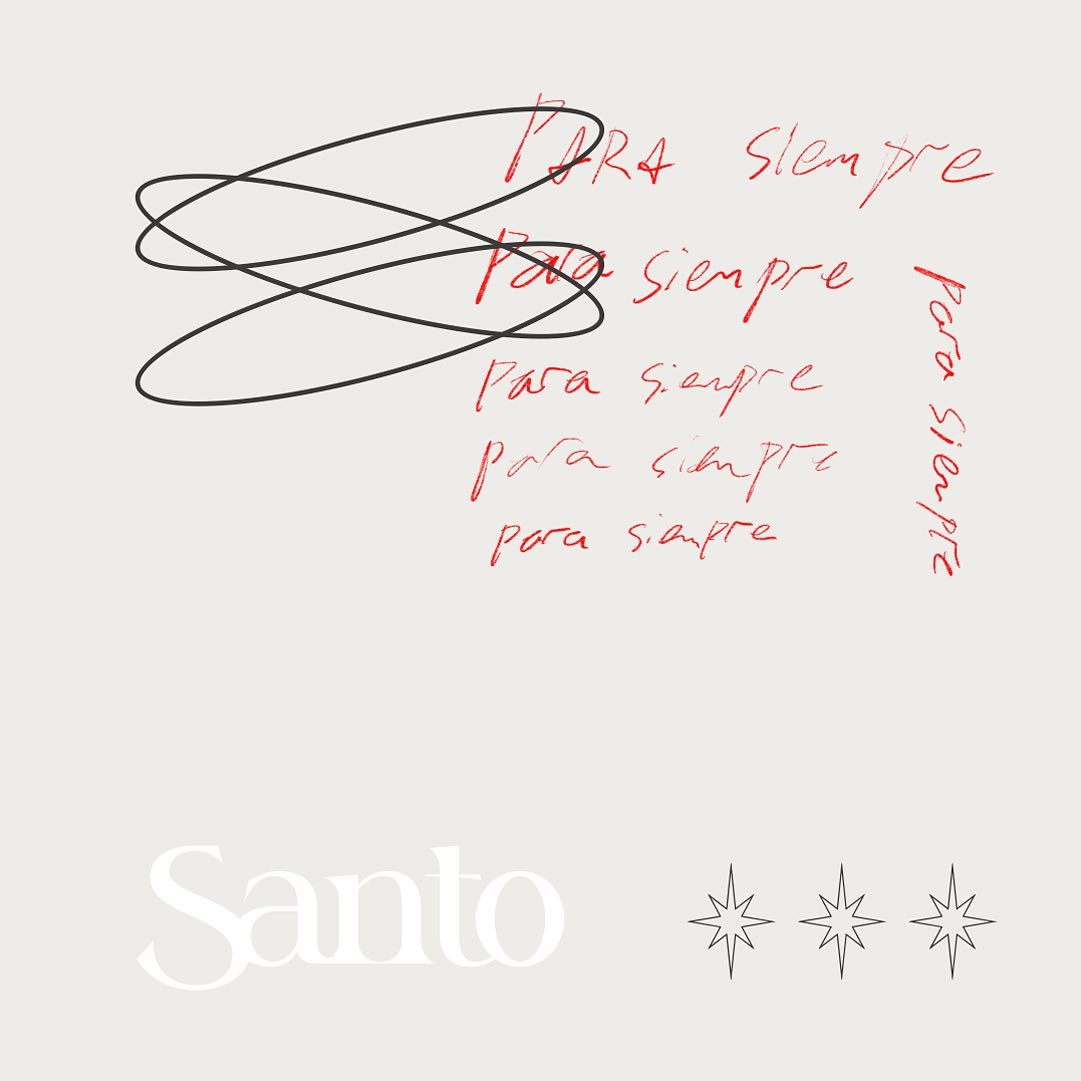 PARA siempre
Para siempre
para siempre
para siempre
para siempre
para siempre
Santo